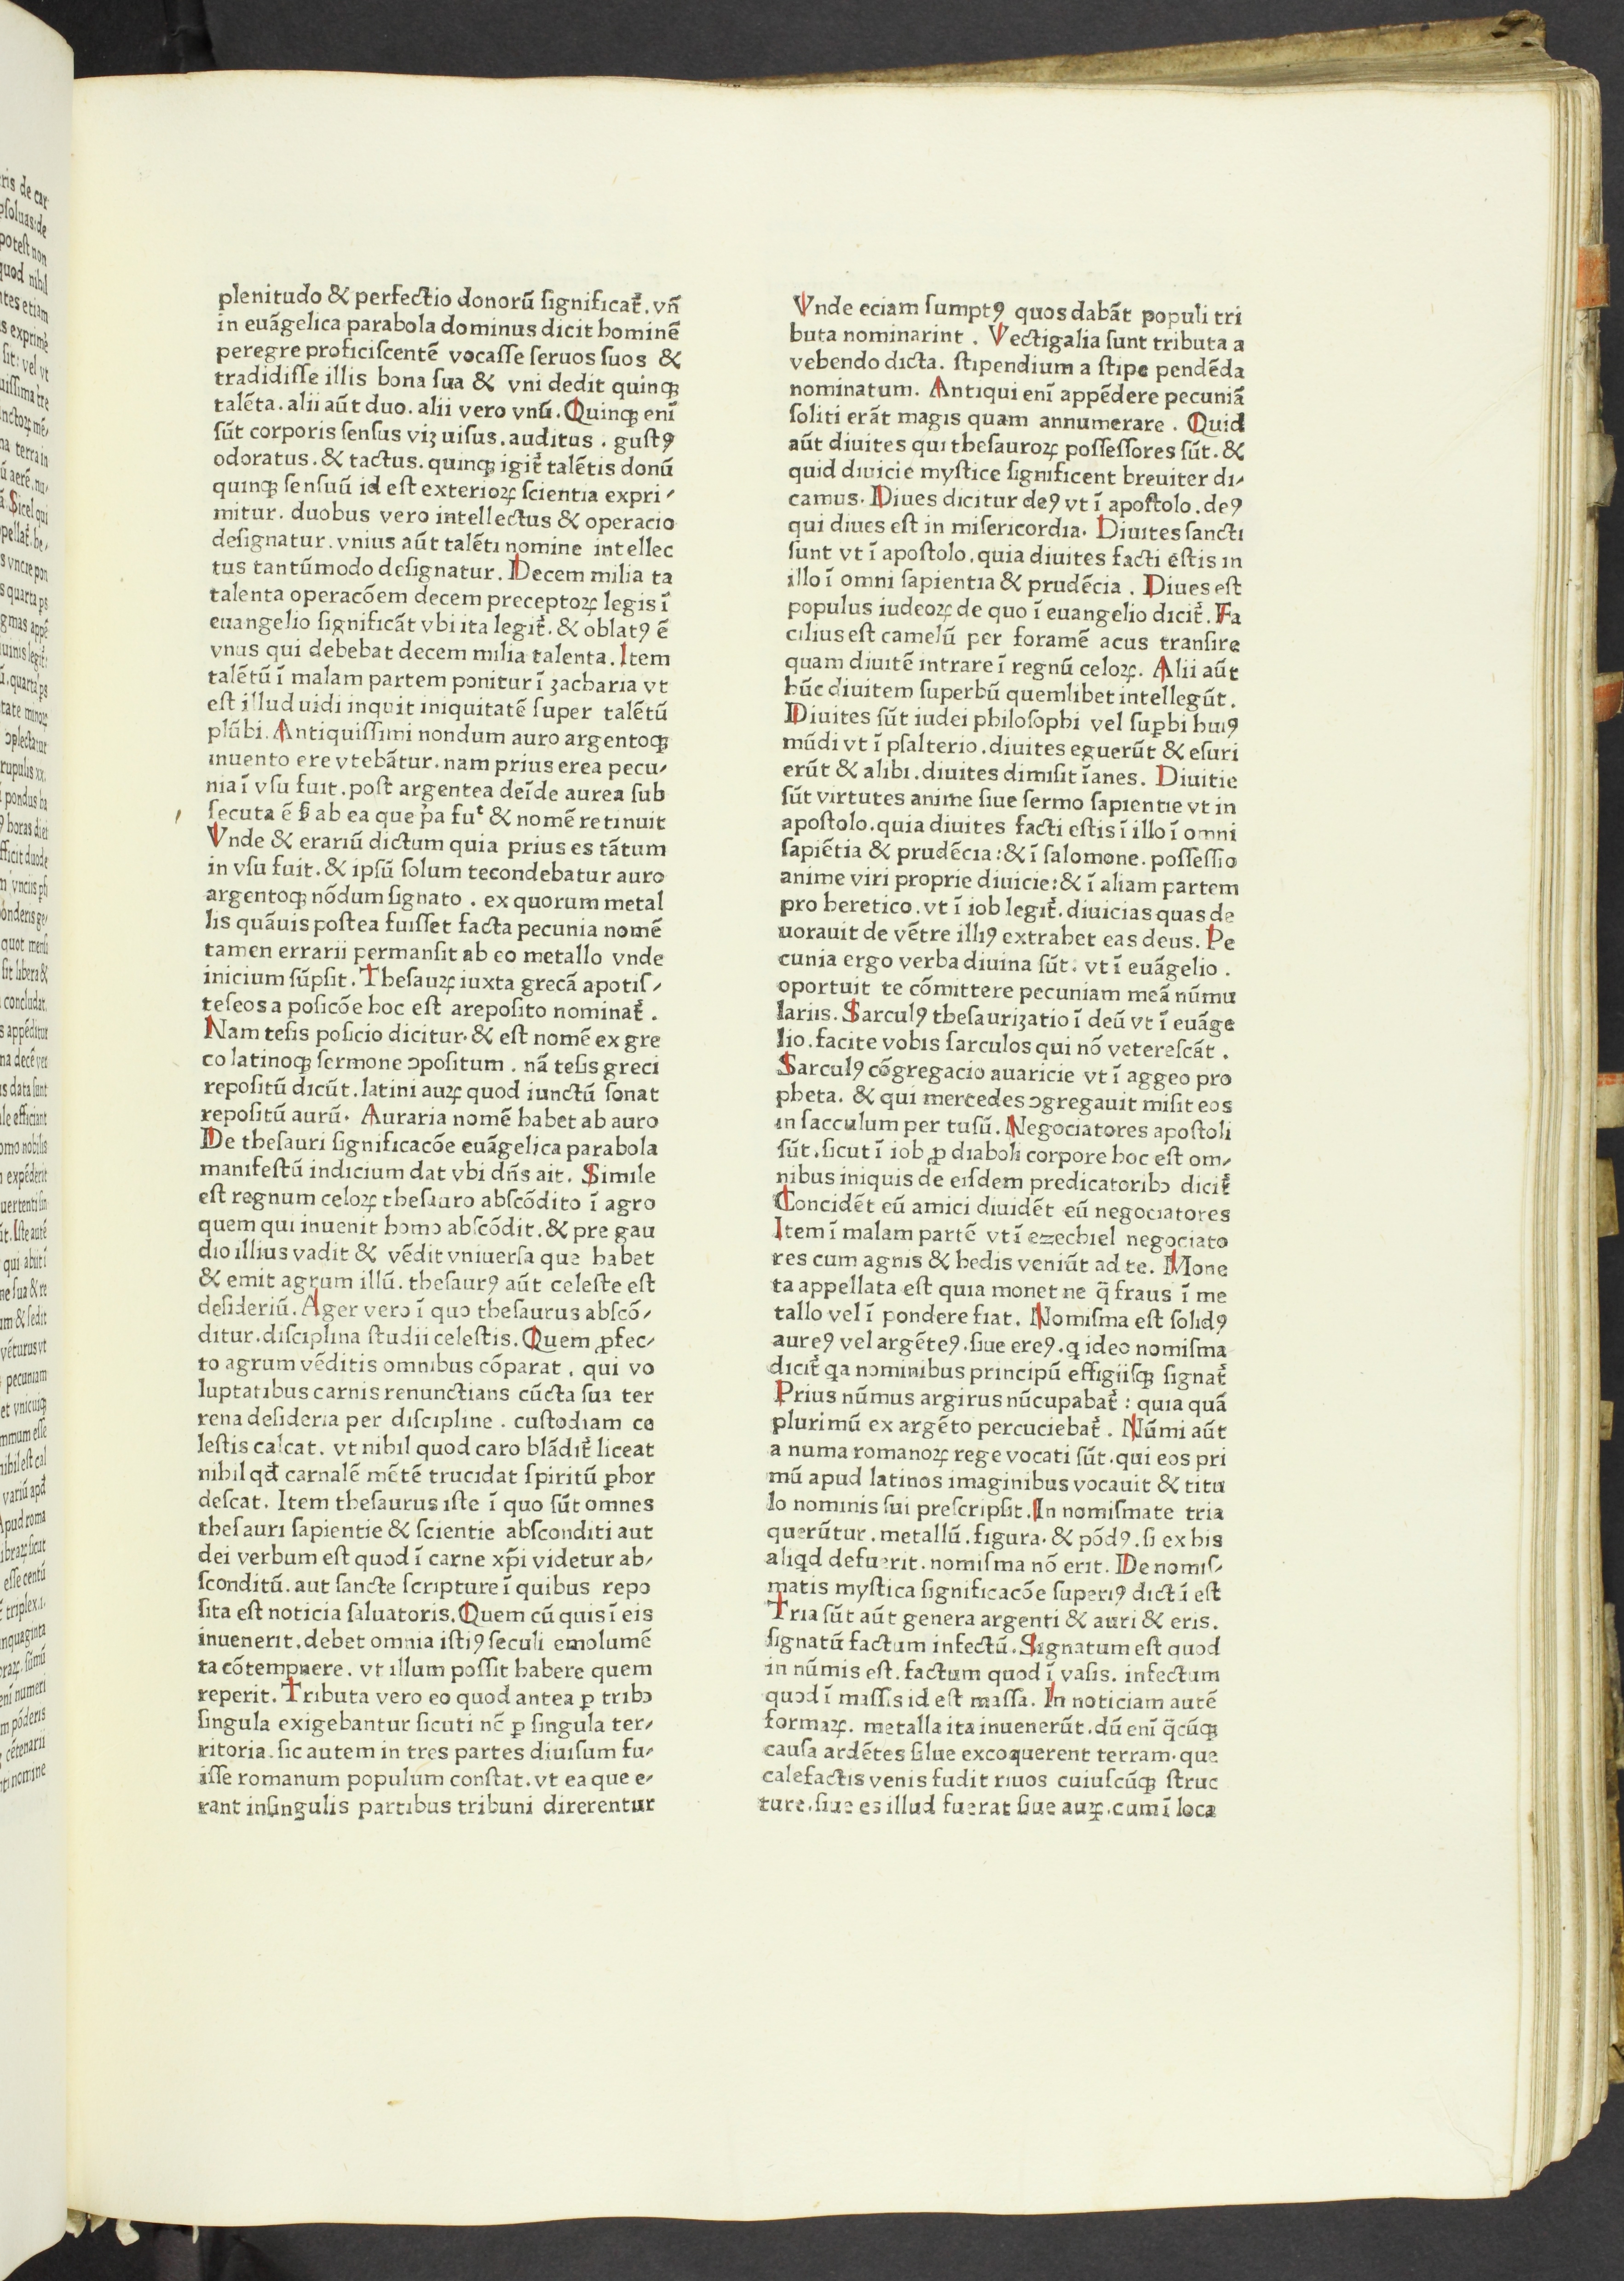 plenitudo & perfectio donorū ſignificat᷑. vn̄
in euāgelica parabola dominus dicit hominē
peregre proficiſcentē vocaſſe ſeruos ſuos &
tradidiſſe illis bona ſua & vni dedit quinqꝫ
talēta. alii aūt duo. alii vero vnū. Quinqꝫ enī
ſūt corporis ſenſus viꝫ uiſus. auditus. guſtꝯ
odoratus. & tactus. quinqꝫ igit᷑ talētis donū
quinqꝫ ſenſuū id eſt exterioꝝ ſcientia expri⸗
mitur. duobus vero intellectus & operacio
deſignatur. vnius aūt talēti nomine intellec
tus tantūmodo deſignatur. Decem milia ta
talenta operacōem decem preceptoꝝ legis ī
euangelio ſignificāt vbi ita legit᷑. & oblatꝯ ē
vnus qui debebat decem milia talenta. Item
talētū ī malam partem ponitur ī zacharia vt
eſt illud uidi inquit iniquitatē ſuper talētū
plūbi. Antiquiſſimi nondum auro argentoqꝫ
inuento ere vtebātur. nam prius erea pecu⸗
nia ī vſu fuit. poſt argentea deīde aurea ſub
ſecuta ē ſꝫ ab ea que p̓a fuᵗ & nomē retinuit
Vnde & erariū dictum quia prius es tātum
in vſu fuit. & ipſū ſolum tecondebatur auro
argentoqꝫ nōdum ſignato. ex quorum metal
lis quāuis poſtea fuiſſet facta pecunia nomē
tamen errarii permanſit ab eo metallo vnde
inicium ſūpſit. Theſauꝝ iuxta grecā apotiſ⸗
teſeos a poſicōe hoc eſt arepoſito nominat᷑.
Nam teſis poſicio dicitur. & eſt nomē ex gre
co latinoqꝫ ſermone ↄpoſitum. nā teſis greci
repoſitū dicūt. latini auꝝ quod iunctū ſonat
repoſitū aurū. Auraria nomē habet ab auro
De theſauri ſignificacōe euāgelica parabola
manifeſtū indicium dat vbi dn̄s ait. Simile
eſt regnum celoꝝ theſauro abſcōdito ī agro
quem qui inuenit homo abſcōdit. & pre gau
dio illius vadit & vēdit vniuerſa que habet
& emit agrum illū. theſaurꝯ aūt celeſte eſt
deſideriū. Ager vero ī quo theſaurus abſcō⸗
ditur. diſciplina ſtudii celeſtis. Quem ꝓfec⸗
to agrum vēditis omnibus cōparat. qui vo
luptatibus carnis renunctians cūcta ſua ter
rena deſideria per diſcipline. cuſtodiam ce
leſtis calcat. vt nihil quod caro blādit᷑ liceat
nihil qd̄ carnalē mētē trucidat ſpiritū ꝑhor
deſcat. Item theſaurus iſte ī quo ſūt omnes
theſauri ſapientie & ſcientie abſconditi aut
dei verbum eſt quod ī carne xp̄i videtur ab⸗
ſconditū. aut ſancte ſcripture ī quibus repo
ſita eſt noticia ſaluatoris. Quem cū quis ī eis
inuenerit. debet omnia iſtiꝯ ſeculi emolumē
ta cōtempnere. vt illum poſſit habere quem
reperit. Tributa vero eo quod antea ꝑ tribꝰ
ſingula exigebantur ſicuti nc̄ ꝑ ſingula ter⸗
ritoria. ſic autem in tres partes diuiſum fu⸗
iſſe romanum populum conſtat. vt ea que e⸗
rant inſingulis partibus tribuni direrentur
Vnde eciam ſumptꝯ quos dabāt populi tri
buta nominarint. Vectigalia ſunt tributa a
vehendo dicta. ſtipendium a ſtipe pendēda
nominatum. Antiqui enī appēdere pecuniā
ſoliti erāt magis quam annumerare. Quid
aūt diuites qui theſauroꝝ poſſeſſores ſūt. &
quid diuicie myſtice ſignificent breuiter di⸗
camus. Diues dicitur deꝯ vt ī apoſtolo. deꝯ
qui diues eſt in miſericordia. Diuites ſancti
ſunt vt ī apoſtolo. quia diuites facti eſtis in
illo ī omni ſapientia & prudēcia. Diues eſt
populus iudeoꝝ de quo ī euangelio dicit᷑. Fa
cilius eſt camelū per foramē acus tranſire
quam diuitē intrare ī regnū celoꝝ. Alii aūt
hūc diuitem ſuperbū quemlibet intellegūt.
Diuites ſūt iudei philoſophi vel ſuꝑbi huiꝯ
mūdi vt ī pſalterio. diuites eguerūt & eſuri
erūt & alibi. diuites dimiſit īanes. Diuitie
ſūt virtutes anime ſiue ſermo ſapientie vt in
apoſtolo. quia diuites facti eſtis ī illo ī omni
ſapiētia & prudēcia: & ī ſalomone. poſſeſſio
anime viri proprie diuicie: & ī aliam partem
pro heretico. vt ī iob legit᷑. diuicias quas de
uorauit de vētre illiꝯ extrahet eas deus. Pe
cunia ergo verba diuina ſūt. vt ī euāgelio.
oportuit te cōmittere pecuniam meā nūmu
lariis. Sarculꝯ theſaurizatio ī deū vt ī euāge
lio. facite vobis ſarculos qui nō vetereſcāt.
Sarculꝯ cōgregacio auaricie vt ī aggeo pro
pheta. & qui mercedes ↄgregauit miſit eos
in ſacculum per tuſū. Negociatores apoſtoli
ſūt. ſicut ī iob ꝓ diaboli corpore hoc eſt om⸗
nibus iniquis de eiſdem predicatoribꝰ dicit᷑
Concidēt eū amici diuidēt eū negociatores
Item ī malam partē vt ī ezechiel negociato
res cum agnis & hedis veniūt ad te. Mone
ta appellata eſt quia monet ne q̄ fraus ī me
tallo vel ī pondere fiat. Nomiſma eſt ſolidꝯ
aureꝯ vel argēteꝯ. ſiue ereꝯ. q ideo nomiſma
dicit᷑ qa nominibus principū effigiiſqꝫ ſignat᷑
Prius nūmus argirus nūcupabat᷑: quia quā
plurimū ex argēto percuciebat᷑. Nūmi aūt
a numa romanoꝝ rege vocati ſūt. qui eos pri
mū apud latinos imaginibus vocauit & titu
lo nominis ſui preſcripſit. In nomiſmate tria
querūtur. metallū. figura. & pōdꝯ. ſi ex his
aliqd defuerit. nomiſma nō erit. De nomiſ⸗
matis myſtica ſignificacōe ſuperiꝯ dictū eſt
Tria ſūt aūt genera argenti & auri & eris.
ſignatū factum infectū. Signatum eſt quod
in nūmis eſt. factum quod ī vaſis. infectum
quod ī maſſis id eſt maſſa. In noticiam autē
formaꝝ. metalla ita inuenerūt. dū enī q̄cūqꝫ
cauſa ardētes ſilue excoquerent terram. que
calefactis venis fudit riuos cuiuſcūqꝫ ſtruc
ture. ſiue es illud fuerat ſiue auꝝ. cum ī loca